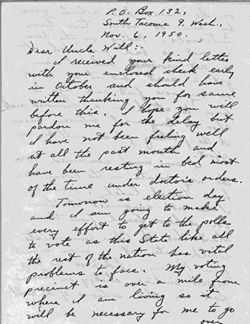 P.O. Box 132,
South Tacoma 9, Wash.
Nov. 6, 1950.
Dear Uncle Will:-
I received your kind letter
with your enclosed check early
in October and should have
written thanking you for same
before this. I hope you will
pardon me for the delay but
I have not been feeling well
at all the past month and
have been resting in bed most
of the time under doctors orders.
Tomorrow is election day
and I am going to make
every effort to get to the polls
to vote as this State like all
the rest of the nation has vital
problems to face. My voting
precinct is over a mile from
where I am living so it
will be necessary for me to go
over